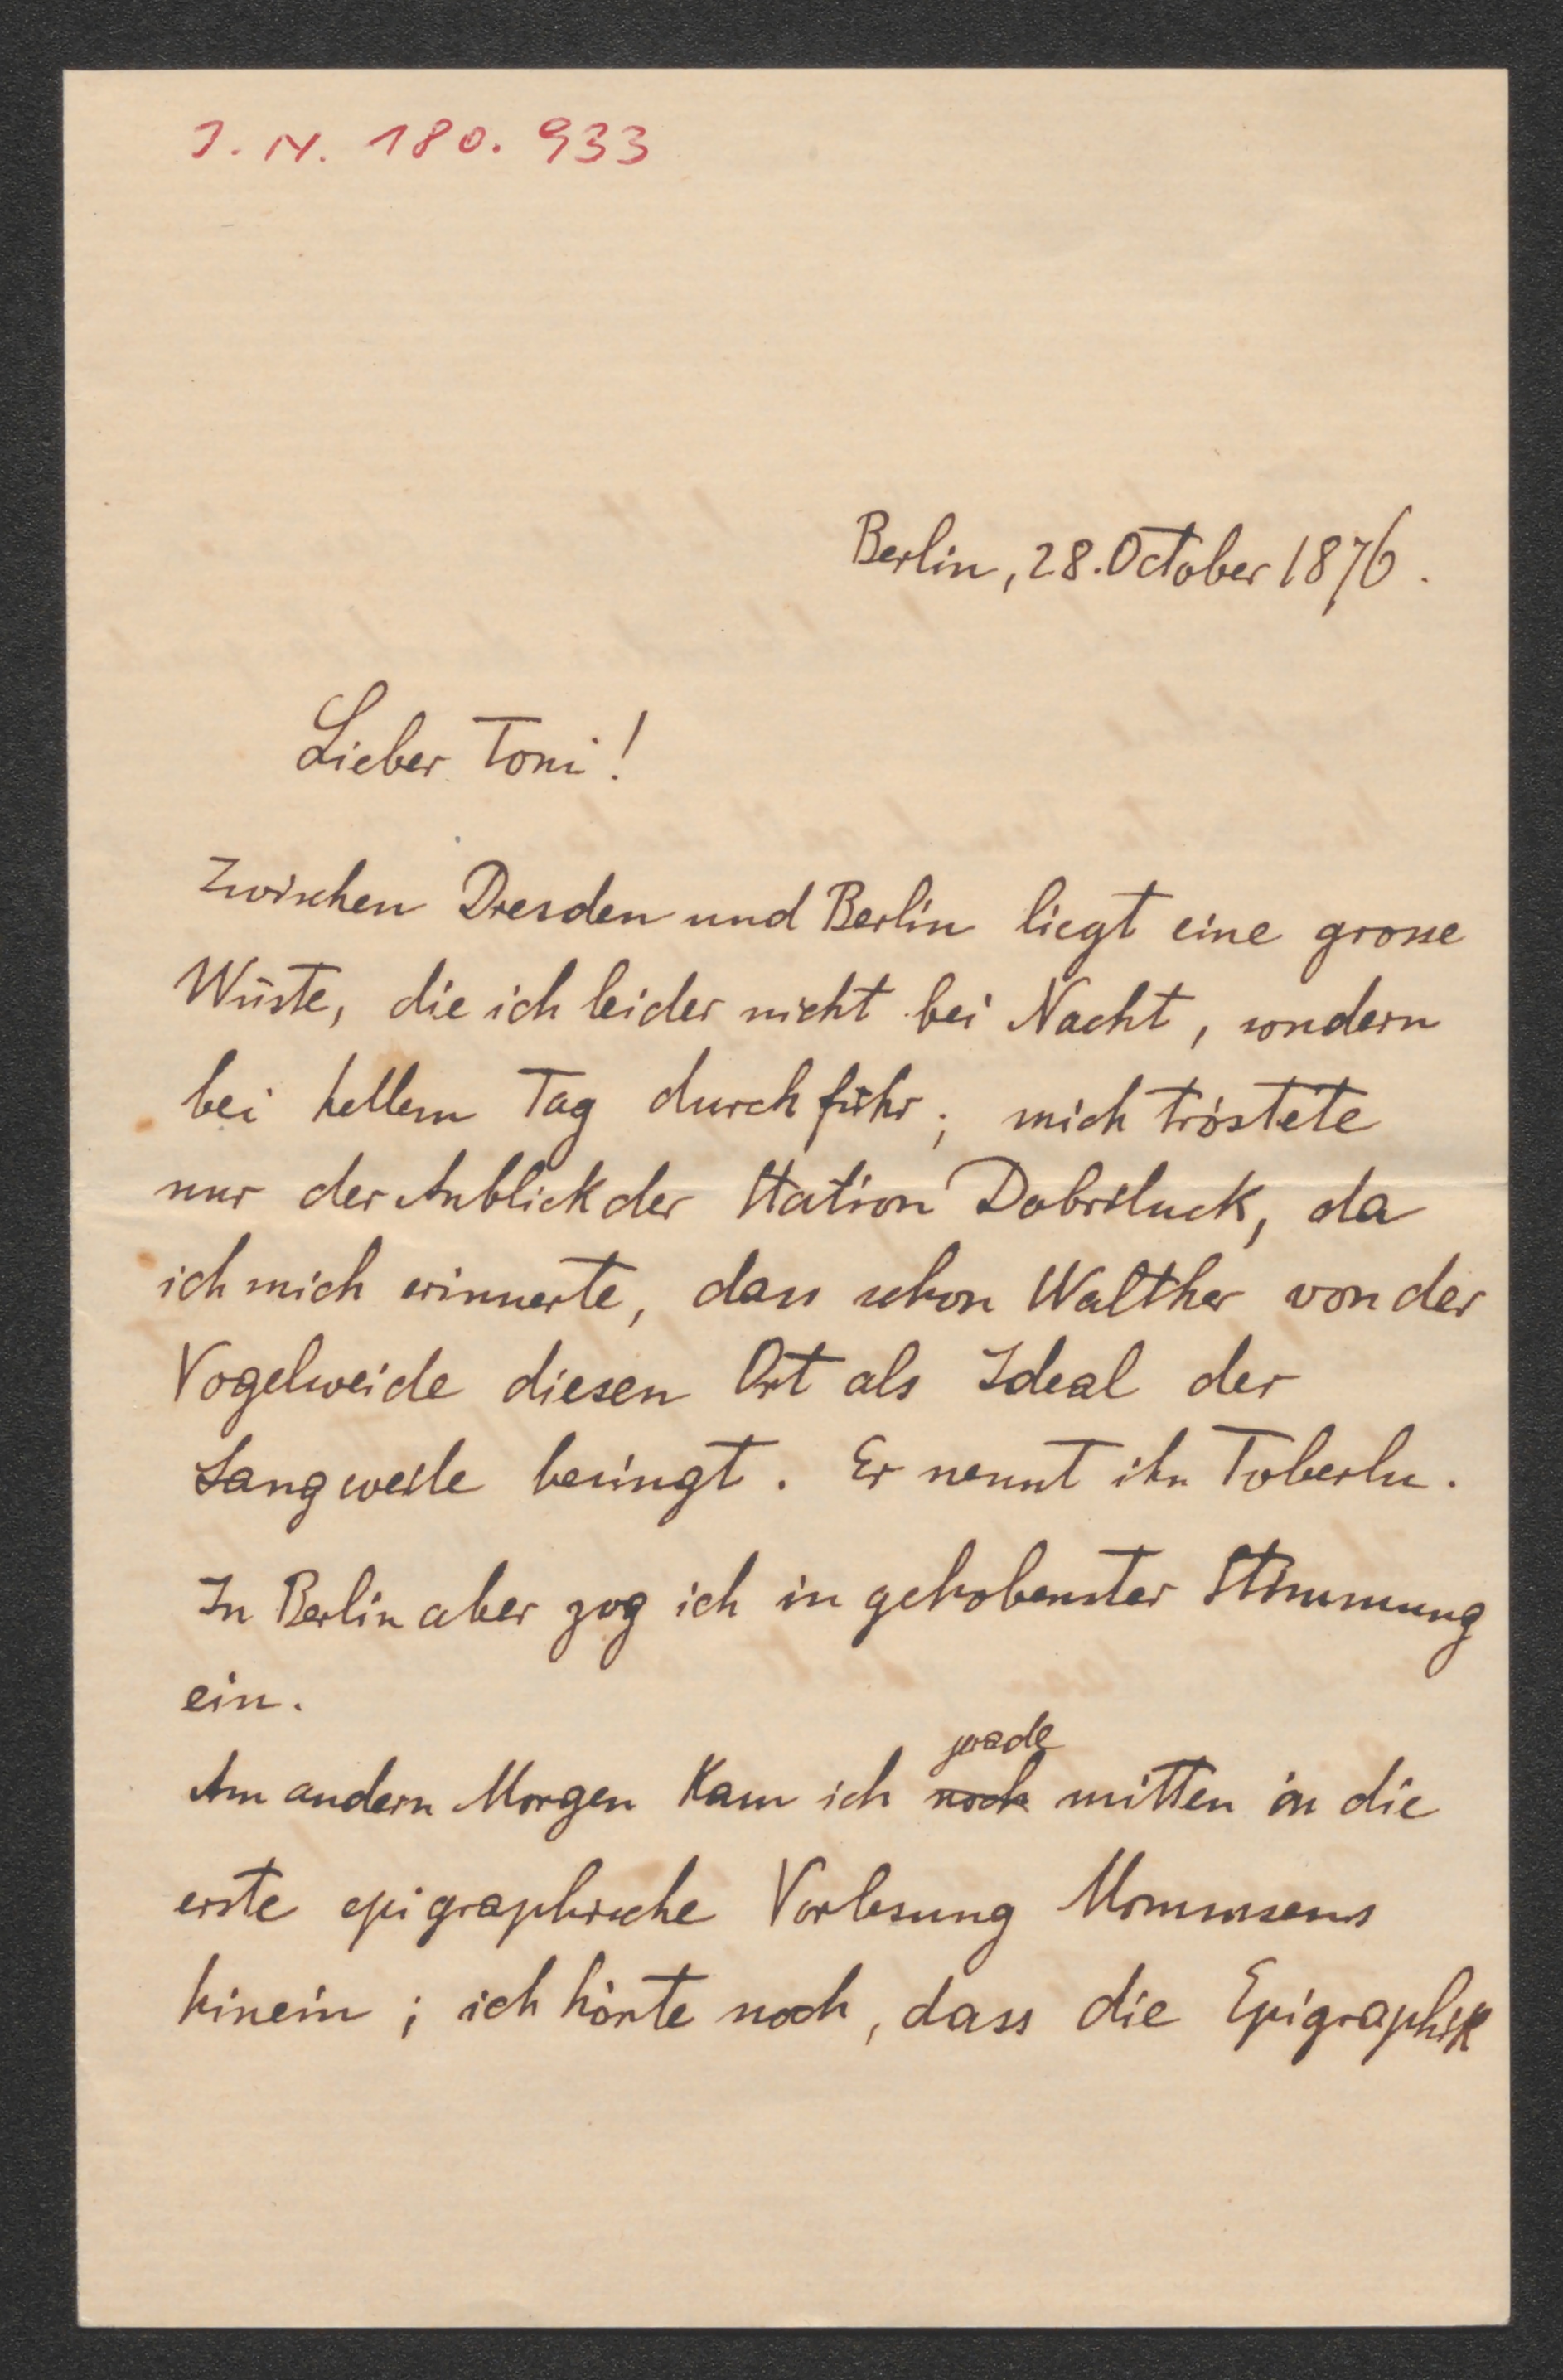 J. N. 180. 933
Berlin, 28. October 1876.
Lieber Toni!
Zwischen Dresden und Berlin liegt eine grosse
Wüste, die ich leider nicht bei Nacht, sondern
bei hellem Tag durchfuhr; mich tröstete
nur der Anblick der Station Dobriluck, da
ich mich erinnerte, dass schon Walther von der
Vogelweide diesen Ort als Ideal der
Langweile besingt. Er nennt ihn Toberlu.
In Berlin aber zog ich in gehobenster Stimmung
ein.
grade
Am andern Morgen kam ich noch mitten in die
erste epigraphische Vorlesung Mommsens
hinein; ich hörte noch, dass die Epigraphik